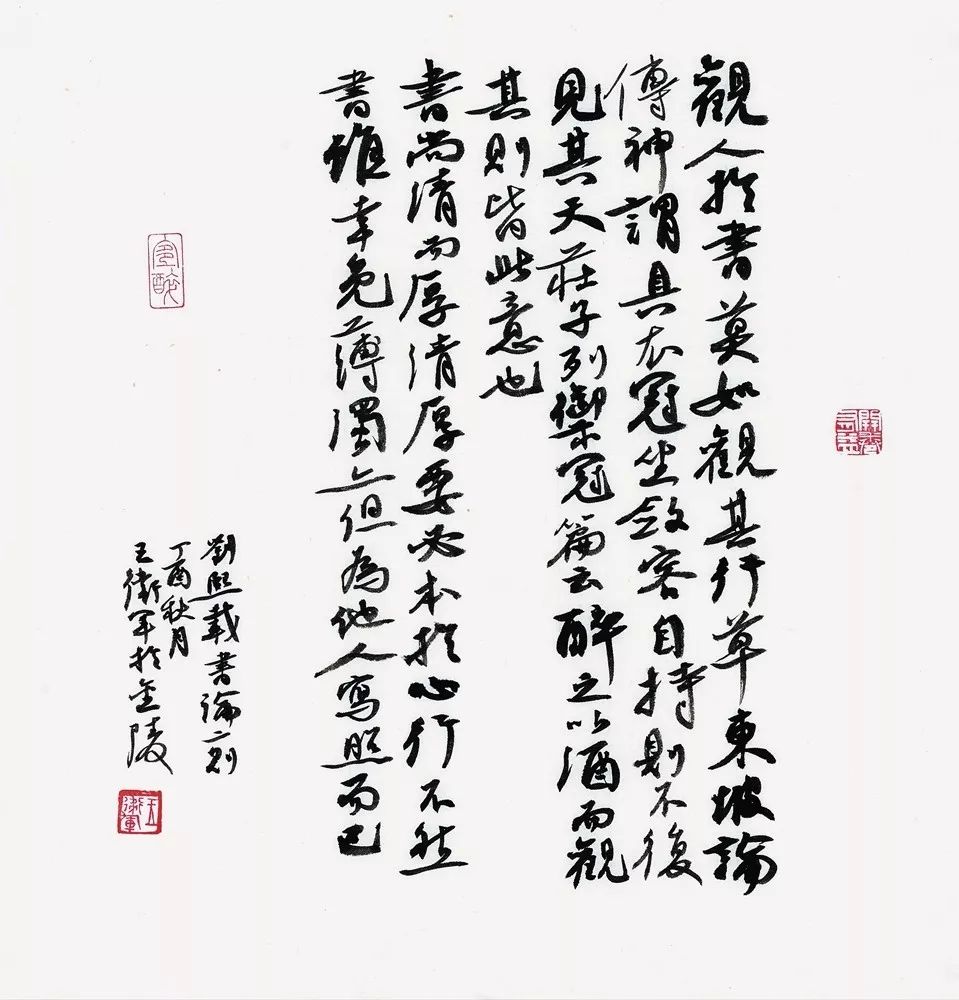 觀人於書莫如觀其行草東坡論
傳神謂具衣冠坐斂容自持則不復
見其天莊子列禦寇篇云醉之以酒而觀
其則皆此意也
書尚清而厚清厚要必本於心行不然
書雖幸免薄濁亦但為他人寫照而已
劉熙載書論二則
丁酉秋月
王衛軍於金陵
王衛軍